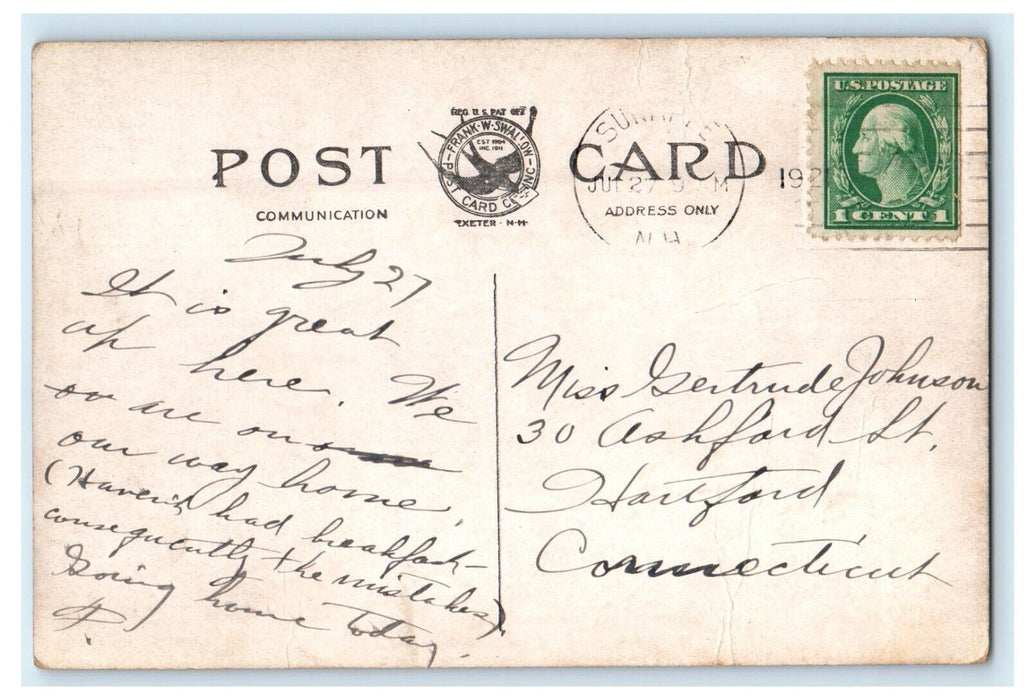 REG U.S. PAT OFF
FRANK·W·SWALLOW
EST 1904
INC. 1911
POST CARD CO. INC
EXETER · N·H
POST CARD
COMMUNICATION
ADDRESS ONLY
SUNAPEE
JUL 27 9 M
N.H.
192
U.S. POSTAGE
1 CENT 1
July 27
It is great
up here. We
or are on
our way home.
(Haven't had breakfast-
consequently the mistakes).
Going home today.
Miss Gertrude Johnson
30 Ashford St.
Hartford
Connecticut